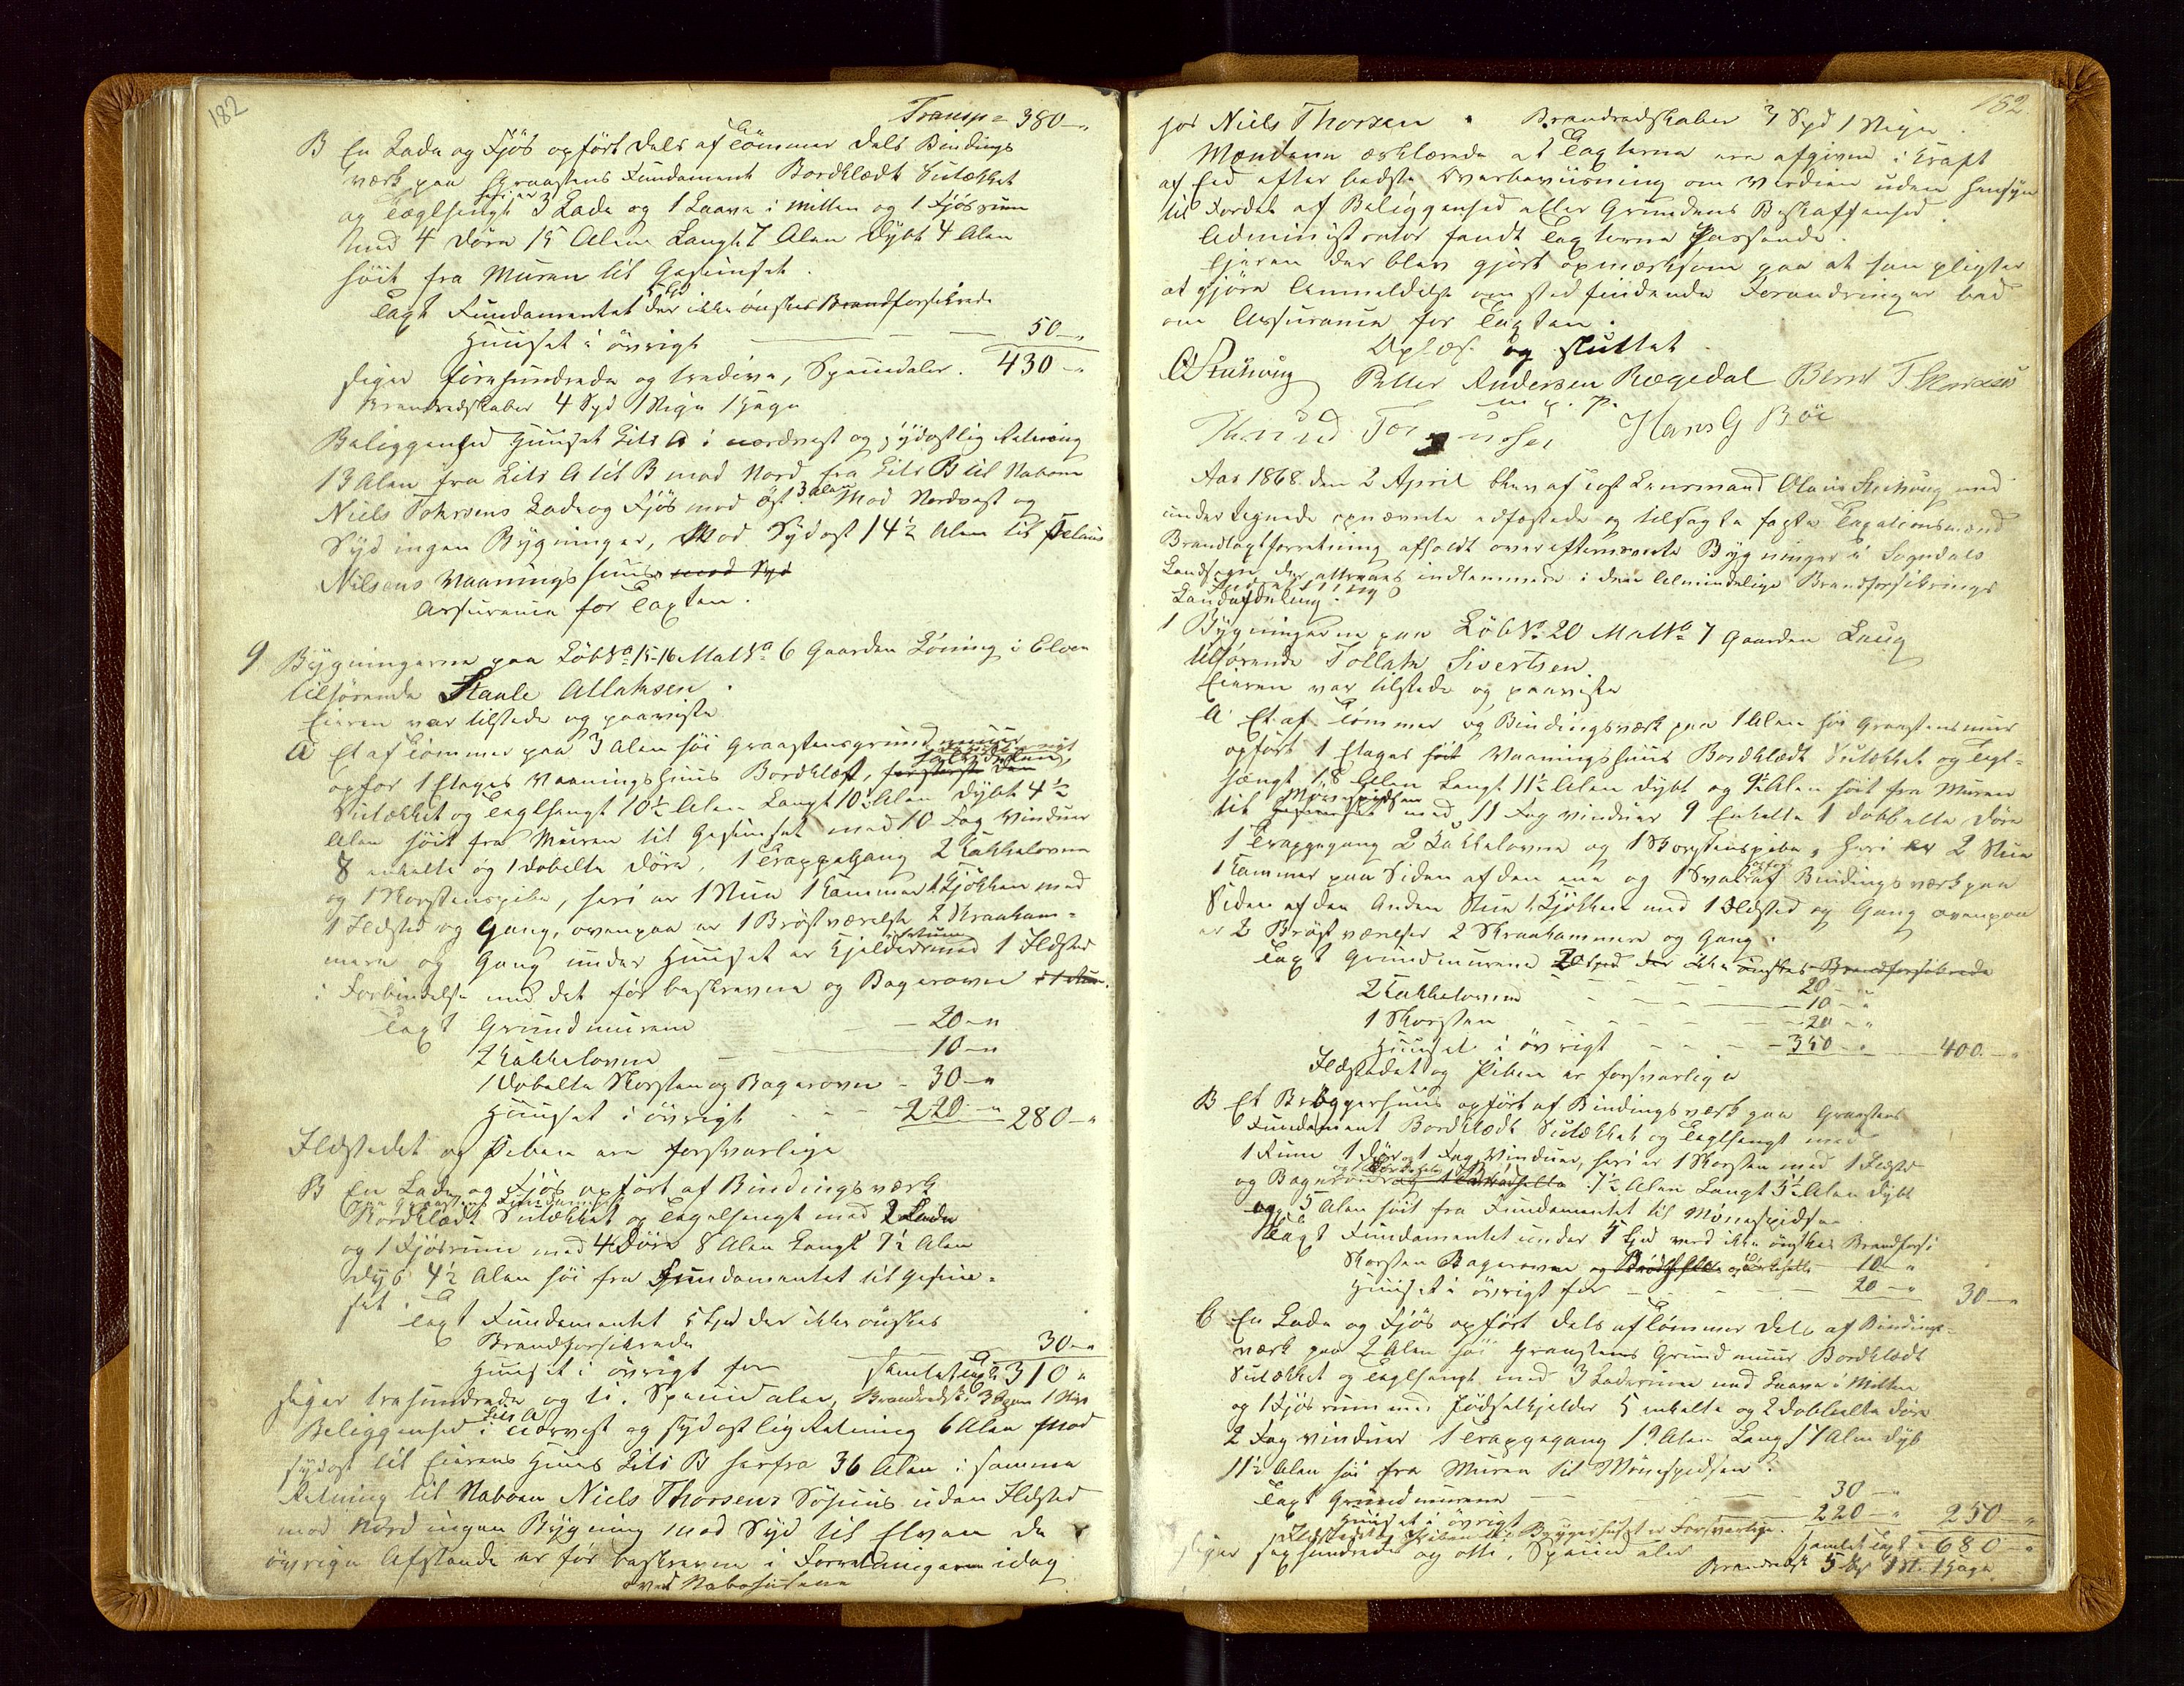 182
Transp = 380 - "
B En Lade og Fjös opfört dels af Tömmer dels Bindings
værk paa Graasteens Fundament Bordklædt Sutækket
og Teglhængt heri er 3 Lade og 1 Laave i Mitten og 1 Fjösrum
med 4 Döre 15 Alen Langt 7 Alen dybt 4 Alen
höit fra Muren til Gesimset.
Taxt Fundamentet 5 Spd der ikke önskes Brandforsikrede
Huuset i övrigt 50 - "
siger firehundrede og tredive, Speciedaler. 430 - "
Brandredskaber 4 Spd 1 Stige 1 Hage
Beliggenhed Huuset Litr A i nordvest og sydostlig Retning
13 Alen fra Litr A til B mod Nord fra Litr B til Naboen
Niels Tohrsens Lade og Fjös mod Öst 3 Alen Mod Nordvest og
Syd ingen Bygninger, Mod Sydost 14½ Alen til
Nilsens Vaaningshuus mod Syd
Assurance for Taxten.
9 Bygningerne paa Löb No 15-16 Mat No 6 Gaarden Löning i Elven
tilhörende Staale Atlaksen.
Eieren var tilstede og paaviste
A Et af Tömmer paa 3 Alen höi Graasteensgrundmuur
opför 1 Etages Vaaningshuus Bordklædt,
Sutækket og Teglhængt 10½ Alen Langt 10½ Alen dybt 4½
Alen höit fra Muren til Gesimset med 10 Fag Vinduer
8 enkelte og 1 dobelte Döre, 1 Trappegang 2 Kakkelovne
og 1 Skorsteenspibe, heri er 1 Stue 1 Kammer 1 Kjökken med
1 Ildsted og Gang, ovenpaa er 1 Bröstværelse 2 Skraakam=
mere og Gang under Huuset er Kjelder med 1 Ildsted
i Forbindelse med det för beskrevne og Bagerovn
Taxt Grundmurene - 20 - "
2 Kakkelovne 10 - "
1 dobelte Skorsten og Bagerovn - 30 - "
Huuset i övrigt - - - 220 - " 280 - "
Ildstedet og Piben ere forsvarlige
B En Lade og Fjös opfört af Bindingsværk
paa Graasteens Fundament
Bordklædt Sutækket og Teglhængt med 2 Lade
og 1 Fjösrum med 4 Döre 8 Alen Langt 7½ Alen
dyb 4½ Alen höi fra Fundamentet til Gesim=
set.
Taxt Fundamentet 5 Spd der ikke önskes
Brandforsikrede
Huuset i övrigt for 30 - "
Samlet Taxt 310 "
siger trehundrede og ti. Speciedaler, Brandredsk: 3 Spand 1 Stige
Beliggenhed Litr A i nordvest og sydostlig Retning 6 Alen Mod
sydost til Eierens Huus Litr B herfra 36 Alen i samme
Retning til Naboen Niels Thorsens Söhuus uden Ildsted
mod Nord ingen Bygning mod Syd til Elven de
övrige Afstande er för beskreven i Forretningerne idag
over Nabohusene
182
hos Niels Thorsen . Brandredskaber 3 Spd 1 Stige.
Mændene erklærede at Taxterne ere afgivne i Kraft
af Eed efter bedste Overbeviisning om Værdien uden Hensyn
til Fordel af Beliggenhed eller Grundens Beskaffenhed.
Administrator fandt Taxterne Passende.
Eieren der blev gjort opmærksom paa at han pligter
at gjöre Anmeldelse om stedfindende Forandringer bad
om Assurance for Taxten.
Oplæst og sluttet.
O Stuhoug Petter Andersen Rægedal Bernt T
m. p. p.
Knud Hans G Böe
Aar 1868 den 2 April blev af const Lensmand Olaus Stuhoug med
undertegnede opnævnte edfæstede og tilsagte faste Taxationsmænd
Brandtaxtforretning afholdt over efternævnte Bygninger i Sogndals
Landsogn der attraaes indlemmede i den Almindelige Brandforsikrings
Indretning
Landafdeling.
1 Bygningerne paa Löb No 20 Mat No 7 Gaarden Laug
tilhörende Tollak Sivertsen
Eieren var tilstede og paaviste
A Et af Tömmer og Bindingsværk paa 1 Alen höi Graasteensmur
opfört 1 Etages höit Vaaningshuus Bordklædt Sutækket og Tegl=
hængt 18 Alen Langt 11½ Alen dybt og 9½ Alen höit fra Muren
til Mönespidsen med 11 Fag Vinduer 9 Enkelte 1 dobbelte Döre
1 Trappegang 2 Kakkelovne og 1 Skorsteenspibe, heri er 2 Stue
1 Kammer paa Siden af den ene og 1 Sval af Bindingsværk paa
Siden af den Anden Stue 1 Kjökken med 1 Ildsted og Gang ovenpaa
er 2 Bröstværelser 2 Skraakammere og Gang.
Taxt Grundmurene 20 Spd der ikke önskes Brandforsikrede
20 - "
2 Kakkelovne 10 - "
1 Skorsten 20 - "
Huuset i övrigt - - - - 350 - " 400 - "
Ildstedet og Piben er forsvarlige
B Et Bryggerhuus opfört af Bindingsværk paa Graasteens
Fundament Bordklædt Sutækket og Teglhængt med
1 Rum 1 Dör og 1 Fag Vinduer, heri er 1 Skorsten med 1 Ildsted
og Bagerovn 7½ Alen Langt 5½ Alen dybt
og 5 Alen höit fra Fundamentet til Mönespidsen
Taxt Fundamentet under 5 Spd værd ikke önskes Brandforsi
Skorsten Bagerovn og 10 "
Huuset i övrigt for 20 - " 30 - "
C En Lade og Fjös opfört dels af Tömmer dels af Bindings=
værk paa 2 Alen höi Graasteens Grundmuur Bordklædt
Sutækket og Teglhængt med 3 Laderum med Laave i Mitten
og 1 Fjösrum med Födselkjelder 5 enkelte og 2 dobbelte Döre
2 Fag Vinduer 1 Trappegang 19 Alen Lang 17 Alen dyb
11½ Alen höi fra Muren til Mönespidsen.
Taxt Grundmurene 30 - "
Huuset i övrigt 220 - " 250 - "
Ildstedet og Piben i Bryggerhuset er Forsvarlige.
siger sexhundrede og otti, Speciedaler Samlet Taxt = 680 - "
Brandredsk 5 Sp 1 St. 1 Hage.